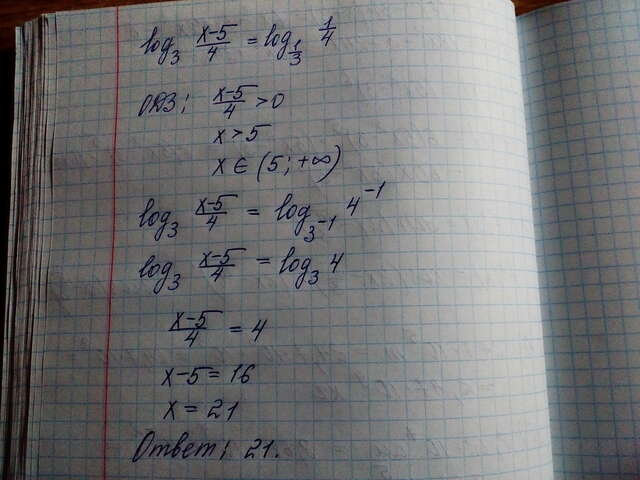 log₃ (x-5)/4 = log_{1/3} 1/4
ОДЗ: (x-5)/4 > 0
x > 5
x ∈ (5; +∞)
log₃ (x-5)/4 = log_{3⁻¹} 4⁻¹
log₃ (x-5)/4 = log₃ 4
(x-5)/4 = 4
x-5 = 16
x = 21
Ответ: 21.